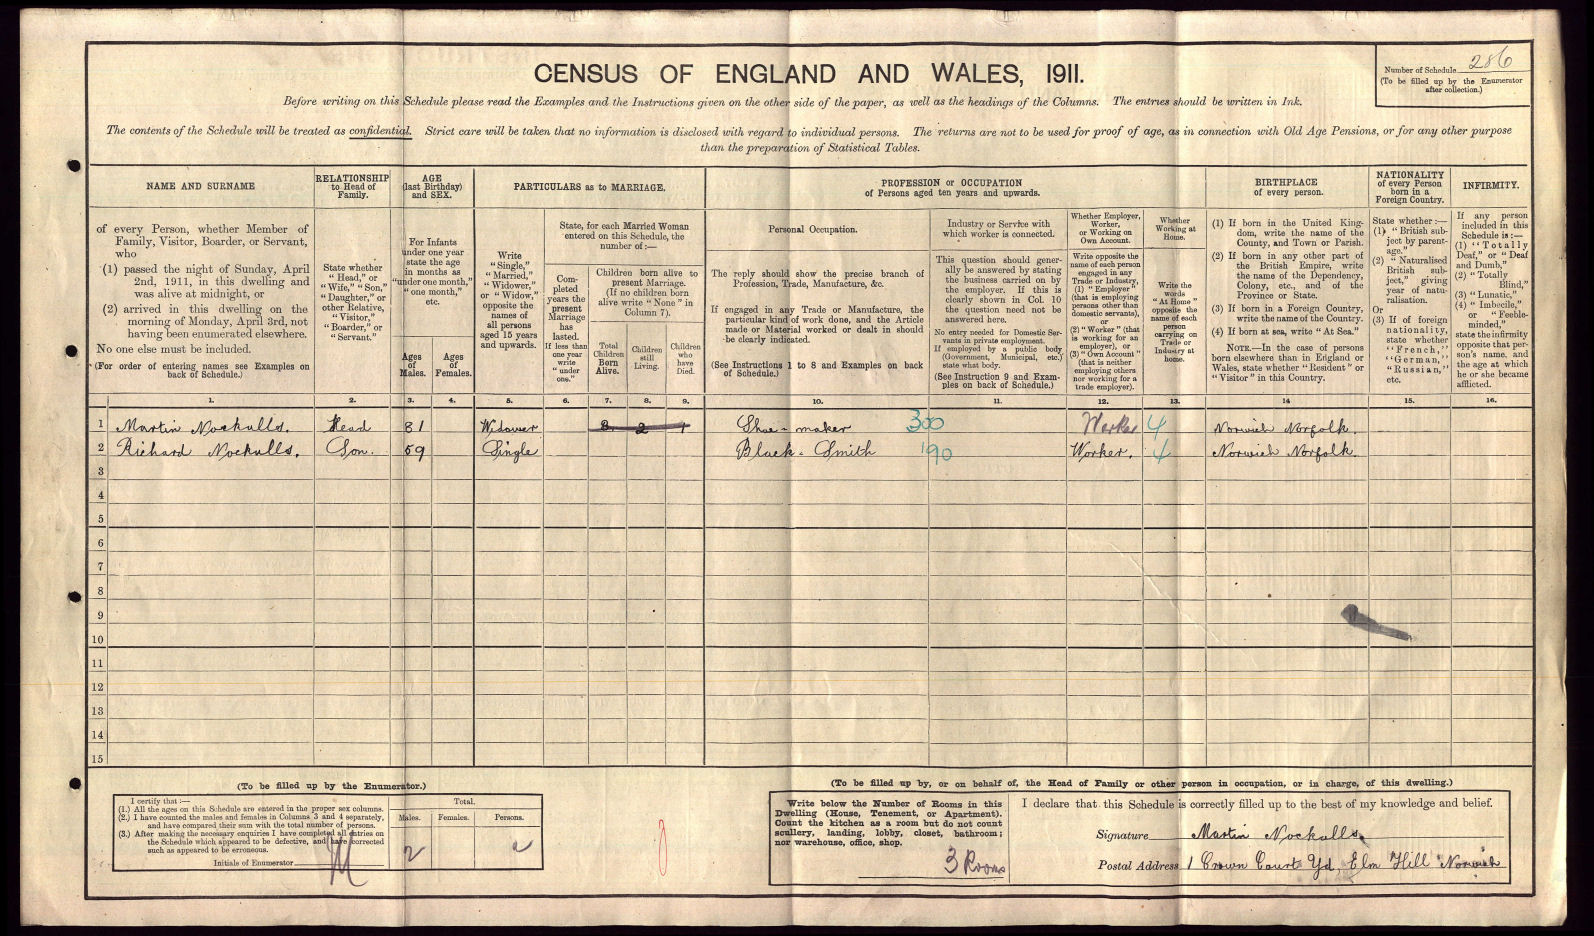 CENSUS OF ENGLAND AND WALES, 1911.
Number of Schedule 286
(To be filled up by the Enumerator
after collection.)
Before writing on this Schedule please read the Examples and the Instructions given on the other side of the paper, as well as the headings of the Columns. The entries should be written in Ink.
The contents of the Schedule will be treated as confidential. Strict care will be taken that no information is disclosed with regard to individual persons. The returns are not to be used for proof of age, as in connection with Old Age Pensions, or for any other purpose
than the preparation of Statistical Tables.
NAME AND SURNAME
of every Person, whether Member of
Family, Visitor, Boarder, or Servant,
who
(1) passed the night of Sunday, April
2nd, 1911, in this dwelling and
was alive at midnight, or
(2) arrived in this dwelling on the
morning of Monday, April 3rd, not
having been enumerated elsewhere.
No one else must be included.
(For order of entering names see Examples on
back of Schedule.)
RELATIONSHIP
to Head of
Family.
State whether
"Head," or
"Wife," "Son,"
"Daughter," or
other Relative,
"Visitor,"
"Boarder," or
"Servant."
AGE
(last Birthday)
and SEX.
For Infants
under one year
state the age
in months as
"under one month,"
"one month,"
etc.
Ages
of
Males.
Ages
of
Females.
PARTICULARS as to MARRIAGE.
Write
"Single,"
"Married,"
"Widower,"
or "Widow,"
opposite the
names of
all persons
aged 15 years
and upwards.
State, for each Married Woman
entered on this Schedule, the
number of:—
Com-
pleted
years the
present
Marriage
has
lasted.
If less than
one year
write
"under
one."
Children born alive to
present Marriage.
(If no children born
alive write "None" in
Column 7).
Total
Children
Born
Alive.
Children
still
Living.
Children
who
have
Died.
PROFESSION or OCCUPATION
of Persons aged ten years and upwards.
Personal Occupation.
The reply should show the precise branch of
Profession, Trade, Manufacture, &c.
If engaged in any Trade or Manufacture, the
particular kind of work done, and the Article
made or Material worked or dealt in should
be clearly indicated.
(See Instructions 1 to 8 and Examples on back
of Schedule.)
Industry or Service with
which worker is connected.
This question should gener-
ally be answered by stating
the business carried on by
the employer. If this is
clearly shown in Col. 10
the question need not be
answered here.
No entry needed for Domestic Ser-
vants in private employment.
If employed by a public body
(Government, Municipal, etc.)
state what body.
(See Instruction 9 and Exam-
ples on back of Schedule.)
Whether Employer,
Worker,
or Working on
Own Account.
Write opposite the
name of each person
engaged in any
Trade or Industry,
(1) "Employer"
(that is employing
persons other than
domestic servants),
or
(2) "Worker" (that
is working for an
employer), or
(3) "Own Account"
(that is neither
employing others
nor working for a
trade employer).
Whether
Working at
Home.
Write the
words
"At Home"
opposite the
name of each
person
carrying on
Trade or
Industry at
home.
BIRTHPLACE
of every person.
(1) If born in the United King-
dom, write the name of the
County, and Town or Parish.
(2) If born in any other part of
the British Empire, write
the name of the Dependency,
Colony, etc., and of the
Province or State.
(3) If born in a Foreign Country,
write the name of the Country.
(4) If born at sea, write "At Sea."
NOTE.—In the case of persons
born elsewhere than in England or
Wales, state whether "Resident" or
"Visitor" in this Country.
NATIONALITY
of every Person
born in a
Foreign Country.
State whether:—
(1) "British sub-
ject by parent-
age."
(2) "Naturalised
British sub-
ject," giving
year of natu-
ralisation.
Or
(3) If of foreign
nationality,
state whether
"French,"
"German,"
"Russian,"
etc.
INFIRMITY.
If any person
included in this
Schedule is:—
(1) "Totally
Deaf," or "Deaf
and Dumb,"
(2) "Totally
Blind,"
(3) "Lunatic,"
(4) "Imbecile,"
or "Feeble-
minded,"
state the infirmity
opposite that per-
son's name, and
the age at which
he or she became
afflicted.
1. 2. 3. 4. 5. 6. 7. 8. 9. 10. 11. 12. 13. 14 15. 16.
1 Martin Nockulls. Head 81 Widower 3 2 1 Shoe-maker 300 Worker 4 Norwich Norfolk.
2 Richard Nockulls. Son. 59 Single Black-Smith 190 Worker. 4 Norwich Norfolk.
3
4
5
6
7
8
9
10
11
12
13
14
15
(To be filled up by the Enumerator.)
I certify that:—
(1.) All the ages on this Schedule are entered in the proper sex columns.
(2.) I have counted the males and females in Columns 3 and 4 separately,
and have compared their sum with the total number of persons.
(3.) After making the necessary enquiries I have completed all entries on
the Schedule which appeared to be defective, and have corrected
such as appeared to be erroneous.
Initials of Enumerator
Total.
Males. Females. Persons.
2 2
(To be filled up by, or on behalf of, the Head of Family or other person in occupation, or in charge, of this dwelling.)
Write below the Number of Rooms in this
Dwelling (House, Tenement, or Apartment).
Count the kitchen as a room but do not count
scullery, landing, lobby, closet, bathroom;
nor warehouse, office, shop.
3 Rooms
I declare that this Schedule is correctly filled up to the best of my knowledge and belief.
Signature Martin Nockulls
Postal Address 1 Crown Court Yd, Elm Hill Norwich